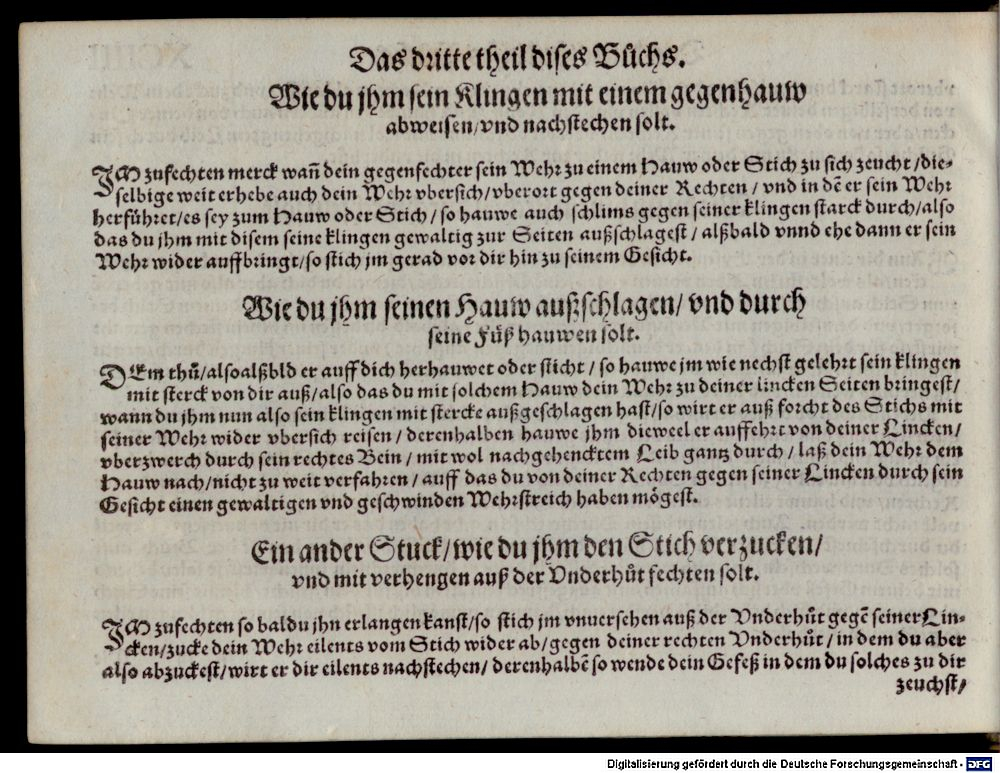 Das dritte theil dises Bůchs.
Wie du jhm sein Klingen mit einem gegenhauw
abweisen/vnd nachstechen solt.
IM zufechten merck wañ dein gegenfechter sein Wehr zu einem Hauw oder Stich zu sich zeucht/die-
selbige weit erhebe auch dein Wehr vbersich/vberort gegen deiner Rechten/vnd in dẽ er sein Wehr
herführet/es sey zum Hauw oder Stich/so hauwe auch schlims gegen seiner klingen starck durch/also
das du jhm mit disem seine klingen gewaltig zur Seiten außschlagest/alßbald vnnd ehe dann er sein
Wehr wider auffbringt/so stich jm gerad vor dir hin zu seinem Gesicht.
Wie du jhm seinen Hauw außschlagen/vnd durch
seine Füß hauwen solt.
DEm thů/alsoalßbld er auff dich herhauwet oder sticht/so hauwe jm wie nechst gelehrt sein klingen
mit sterck von dir auß/also das du mit solchem Hauw dein Wehr zu deiner lincken Seiten bringest/
wann du jhm nun also sein klingen mit stercke außgeschlagen hast/so wirt er auß forcht des Stichs mit
seiner Wehr wider vbersich reisen/derenhalben hauwe jhm dieweel er auffehrt von deiner Lincken/
vberzwerch durch sein rechtes Bein/mit wol nachgehencktem Leib gantz durch/laß dein Wehr dem
Hauw nach/nicht zu weit verfahren/auff das du von deiner Rechten gegen seiner Lincken durch sein
Gesicht einen gewaltigen vnd geschwinden Wehrstreich haben mögest.
Ein ander Stuck/wie du jhm den Stich verzucken/
vnd mit verhengen auß der Vnderhůt fechten solt.
IM zufechten so baldu jhn erlangen kanst/so stich jm vnuersehen auß der Vnderhůt gegẽ seiner Lin-
cken/zucke dein Wehr eilents vom Stich wider ab/gegen deiner rechten Vnderhůt/in dem du aber
also abzuckest/wirt er dir eilents nachstechen/derenhalbẽ so wende dein Gefeß in dem du solches zu dir
zeuchst/
Digitalisierung gefördert durch die Deutsche Forschungsgemeinschaft - DFG